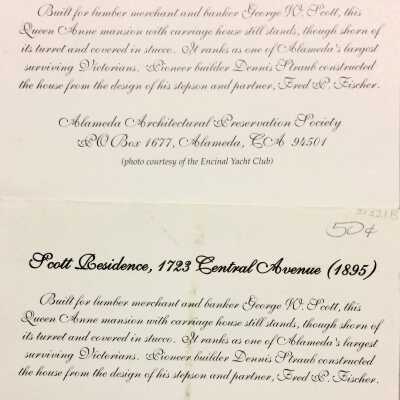 Built for lumber merchant and banker George W. Scott, this
Queen Anne mansion with carriage house still stands, though shorn of
its turret and covered in stucco. It ranks as one of Alameda's largest
surviving Victorians. Pioneer builder Dennis Straub constructed
the house from the design of his stepson and partner, Fred P. Fischer.
Alameda Architectural Preservation Society
PO Box 1677, Alameda, CA 94501
(photo courtesy of the Encinal Yacht Club)
50¢
Scott Residence, 1723 Central Avenue (1895)
Built for lumber merchant and banker George W. Scott, this
Queen Anne mansion with carriage house still stands, though shorn of
its turret and covered in stucco. It ranks as one of Alameda's largest
surviving Victorians. Pioneer builder Dennis Straub constructed
the house from the design of his stepson and partner, Fred P. Fischer.